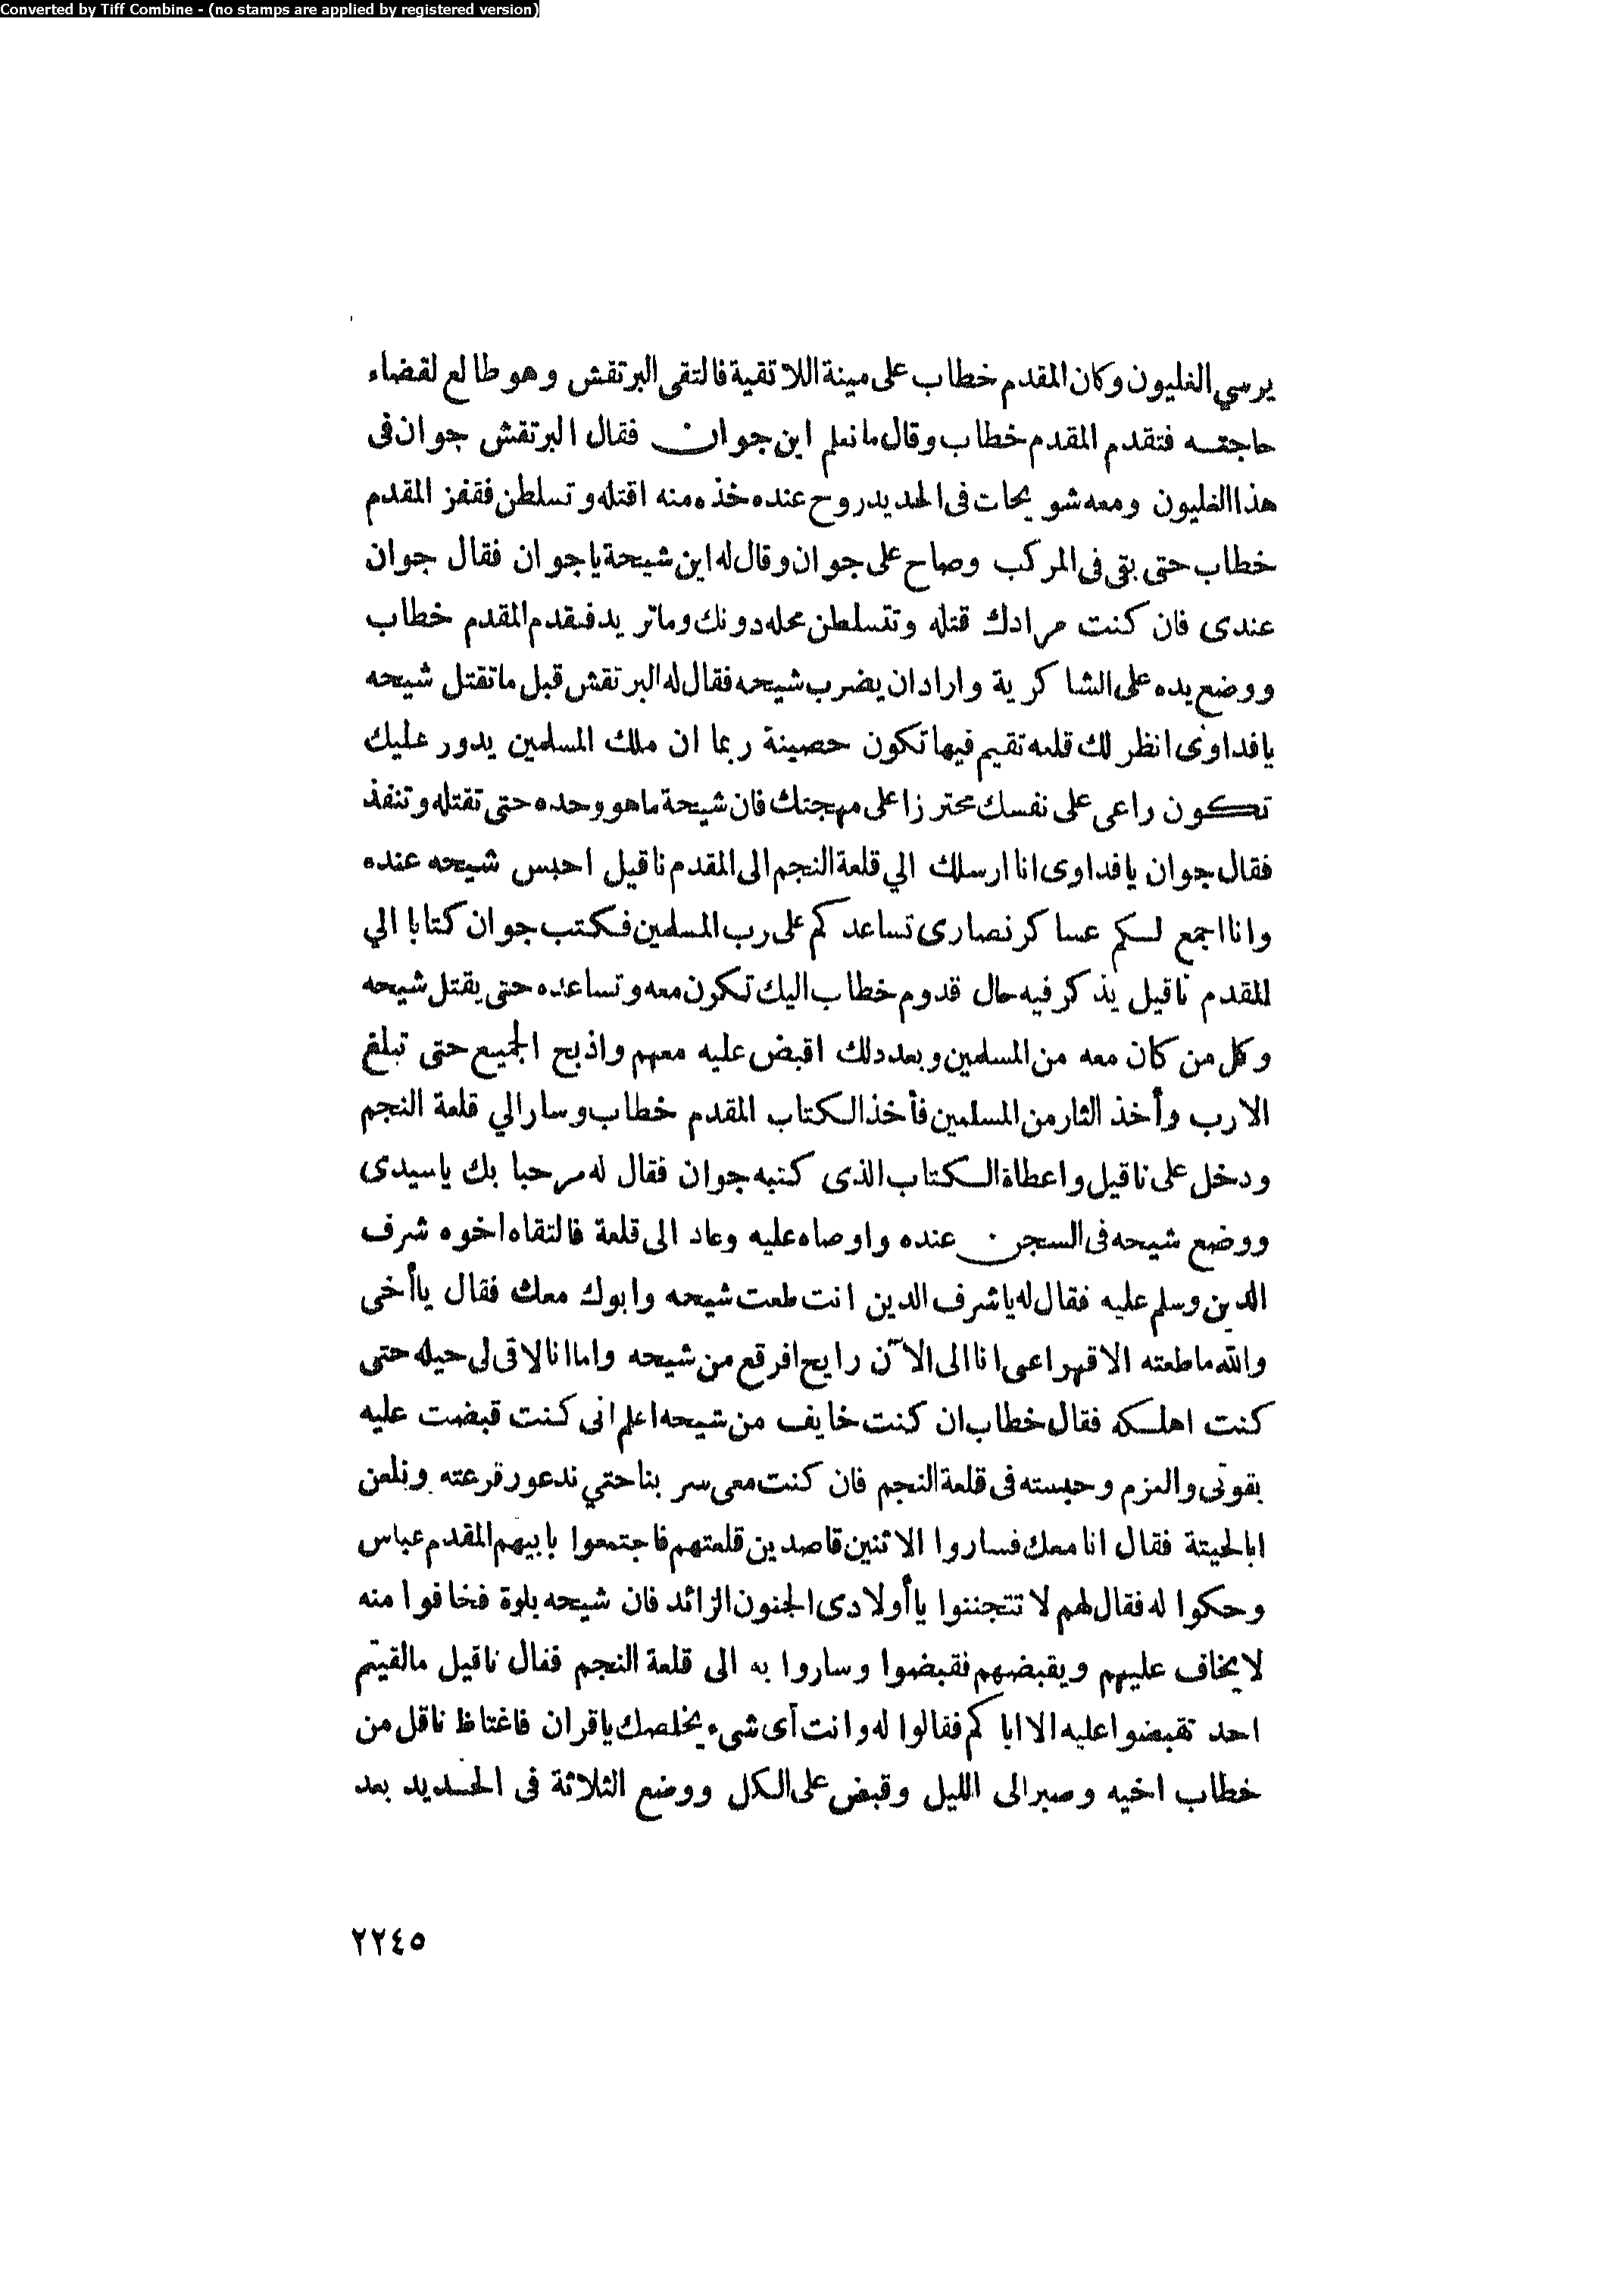 Converted by Tiff Combine - (no stamps are applied by registered version)
يرسي الغليون وكان المقدم خطاب على مينة اللاتقية فالتقى البرتقش وهو طالع لقضاء
حاجته فتقدم المقدم خطاب وقال ما نعلم اين جوان فقال البرتقش جوان فى
هذا الغليون ومعه شويحات فى الحديد روح عنده خذه منه اقتله وتسلطن فقفز المقدم
خطاب حتى بقى فى المركب وصاح على جوان وقال له اين شيحة يا جوان فقال جوان
عندى فان كنت مرادك قتله وتتسلطن محله دونك وما تريد فتقدم المقدم خطاب
ووضع يده على الشاكرية واراد ان يضرب شيحه فقال له البرتقش قبل ما تقتل شيحه
يا فداوى انظر لك قلعه تقيم فيها تكون حصينة ربما ان ملك المسلمين يدور عليك
تكون راعى على نفسك محترزا على مهجتك فان شيحة ما هو وحده حتى تقتله وتنفذ
فقال جوان يا فداوى انا ارسلك الي قلعة النجم الى المقدم ناقيل احبس شيحه عنده
وانا اجمع لكم عساكر نصارى تساعدكم على رب المسلمين فكتب جوان كتابا الي
المقدم ناقيل يذكر فيه حال قدوم خطاب اليك تكون معه وتساعده حتى يقتل شيحه
وكل من كان معه من المسلمين وبعد دلك اقبض عليه معهم واذبح الجميع حتى تبلغ
الارب وأخذ الثار من المسلمين فأخذ الكتاب المقدم خطاب وسار الي قلعة النجم
ودخل على ناقيل واعطاة الكتاب الذى كتبه جوان فقال له مرحبا بك ياسيدى
ووضع شيحه فى السجن عنده واوصاه عليه وعاد الى قلعة فالتقاه اخوه شرف
الدين وسلم عليه فقال له يا شرف الدين انت طعت شيحه وابوك معك فقال يا أخى
والله ما طعته الا قهرا عمى انا الى الآن رايح افرقع من شيحه واما انا لاقى لى حيله حتى
كنت اهلكه فقال خطاب ان كنت خايف من شيحه اعلم انى كنت قبضت عليه
بقوتى والعزم وحبسته فى قلعة النجم فان كنت معى سر بنا حتي ندعور قرعته ونلعن
ابالحيتة فقال انا معك فساروا الاثنين قاصدين قلعتهم فاجتمعوا بابيهم المقدم عباس
وحكوا له فقال لهم لا تتجننوا يا أولادى الجنون الزائد فان شيحه بلوة فخافوا منه
لا يخاف عليهم ويقبضهم فقبضوا وساروا به الى قلعة النجم فقال ناقيل مالقيتم
احد تقبضوا عليه الا اباكم فقالوا له وانت أى شىء يخلصك ياقران فاغتاظ ناقل من
خطاب اخيه وصبر الى الليل وقبض على الكل ووضع الثلاثة فى الحديد بعد
٢٢٤٥